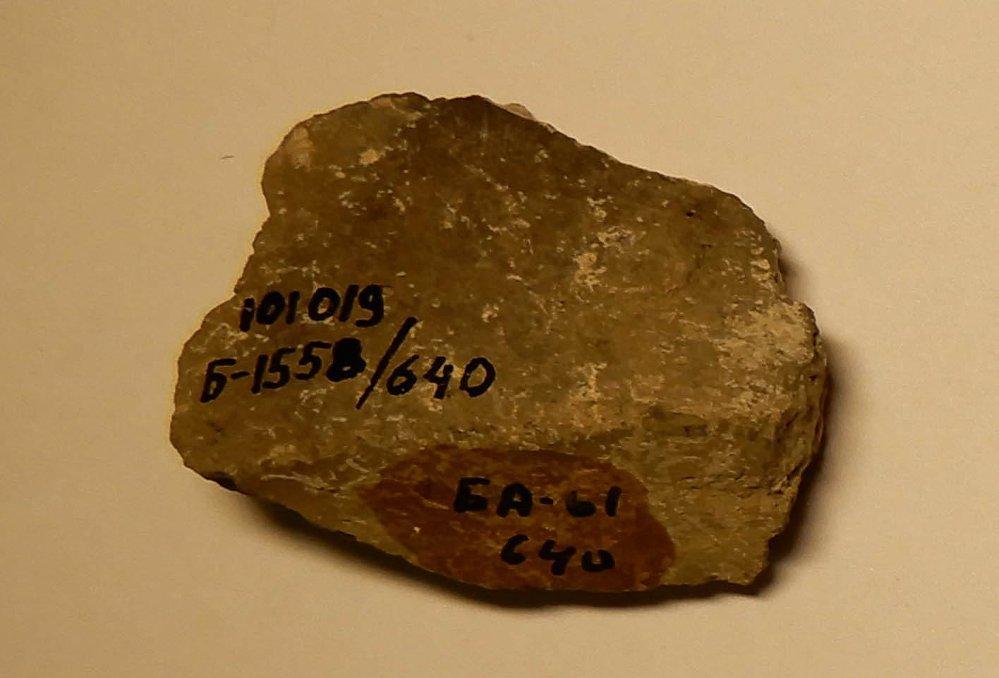 101019
Б-1558/640
БА-61
640